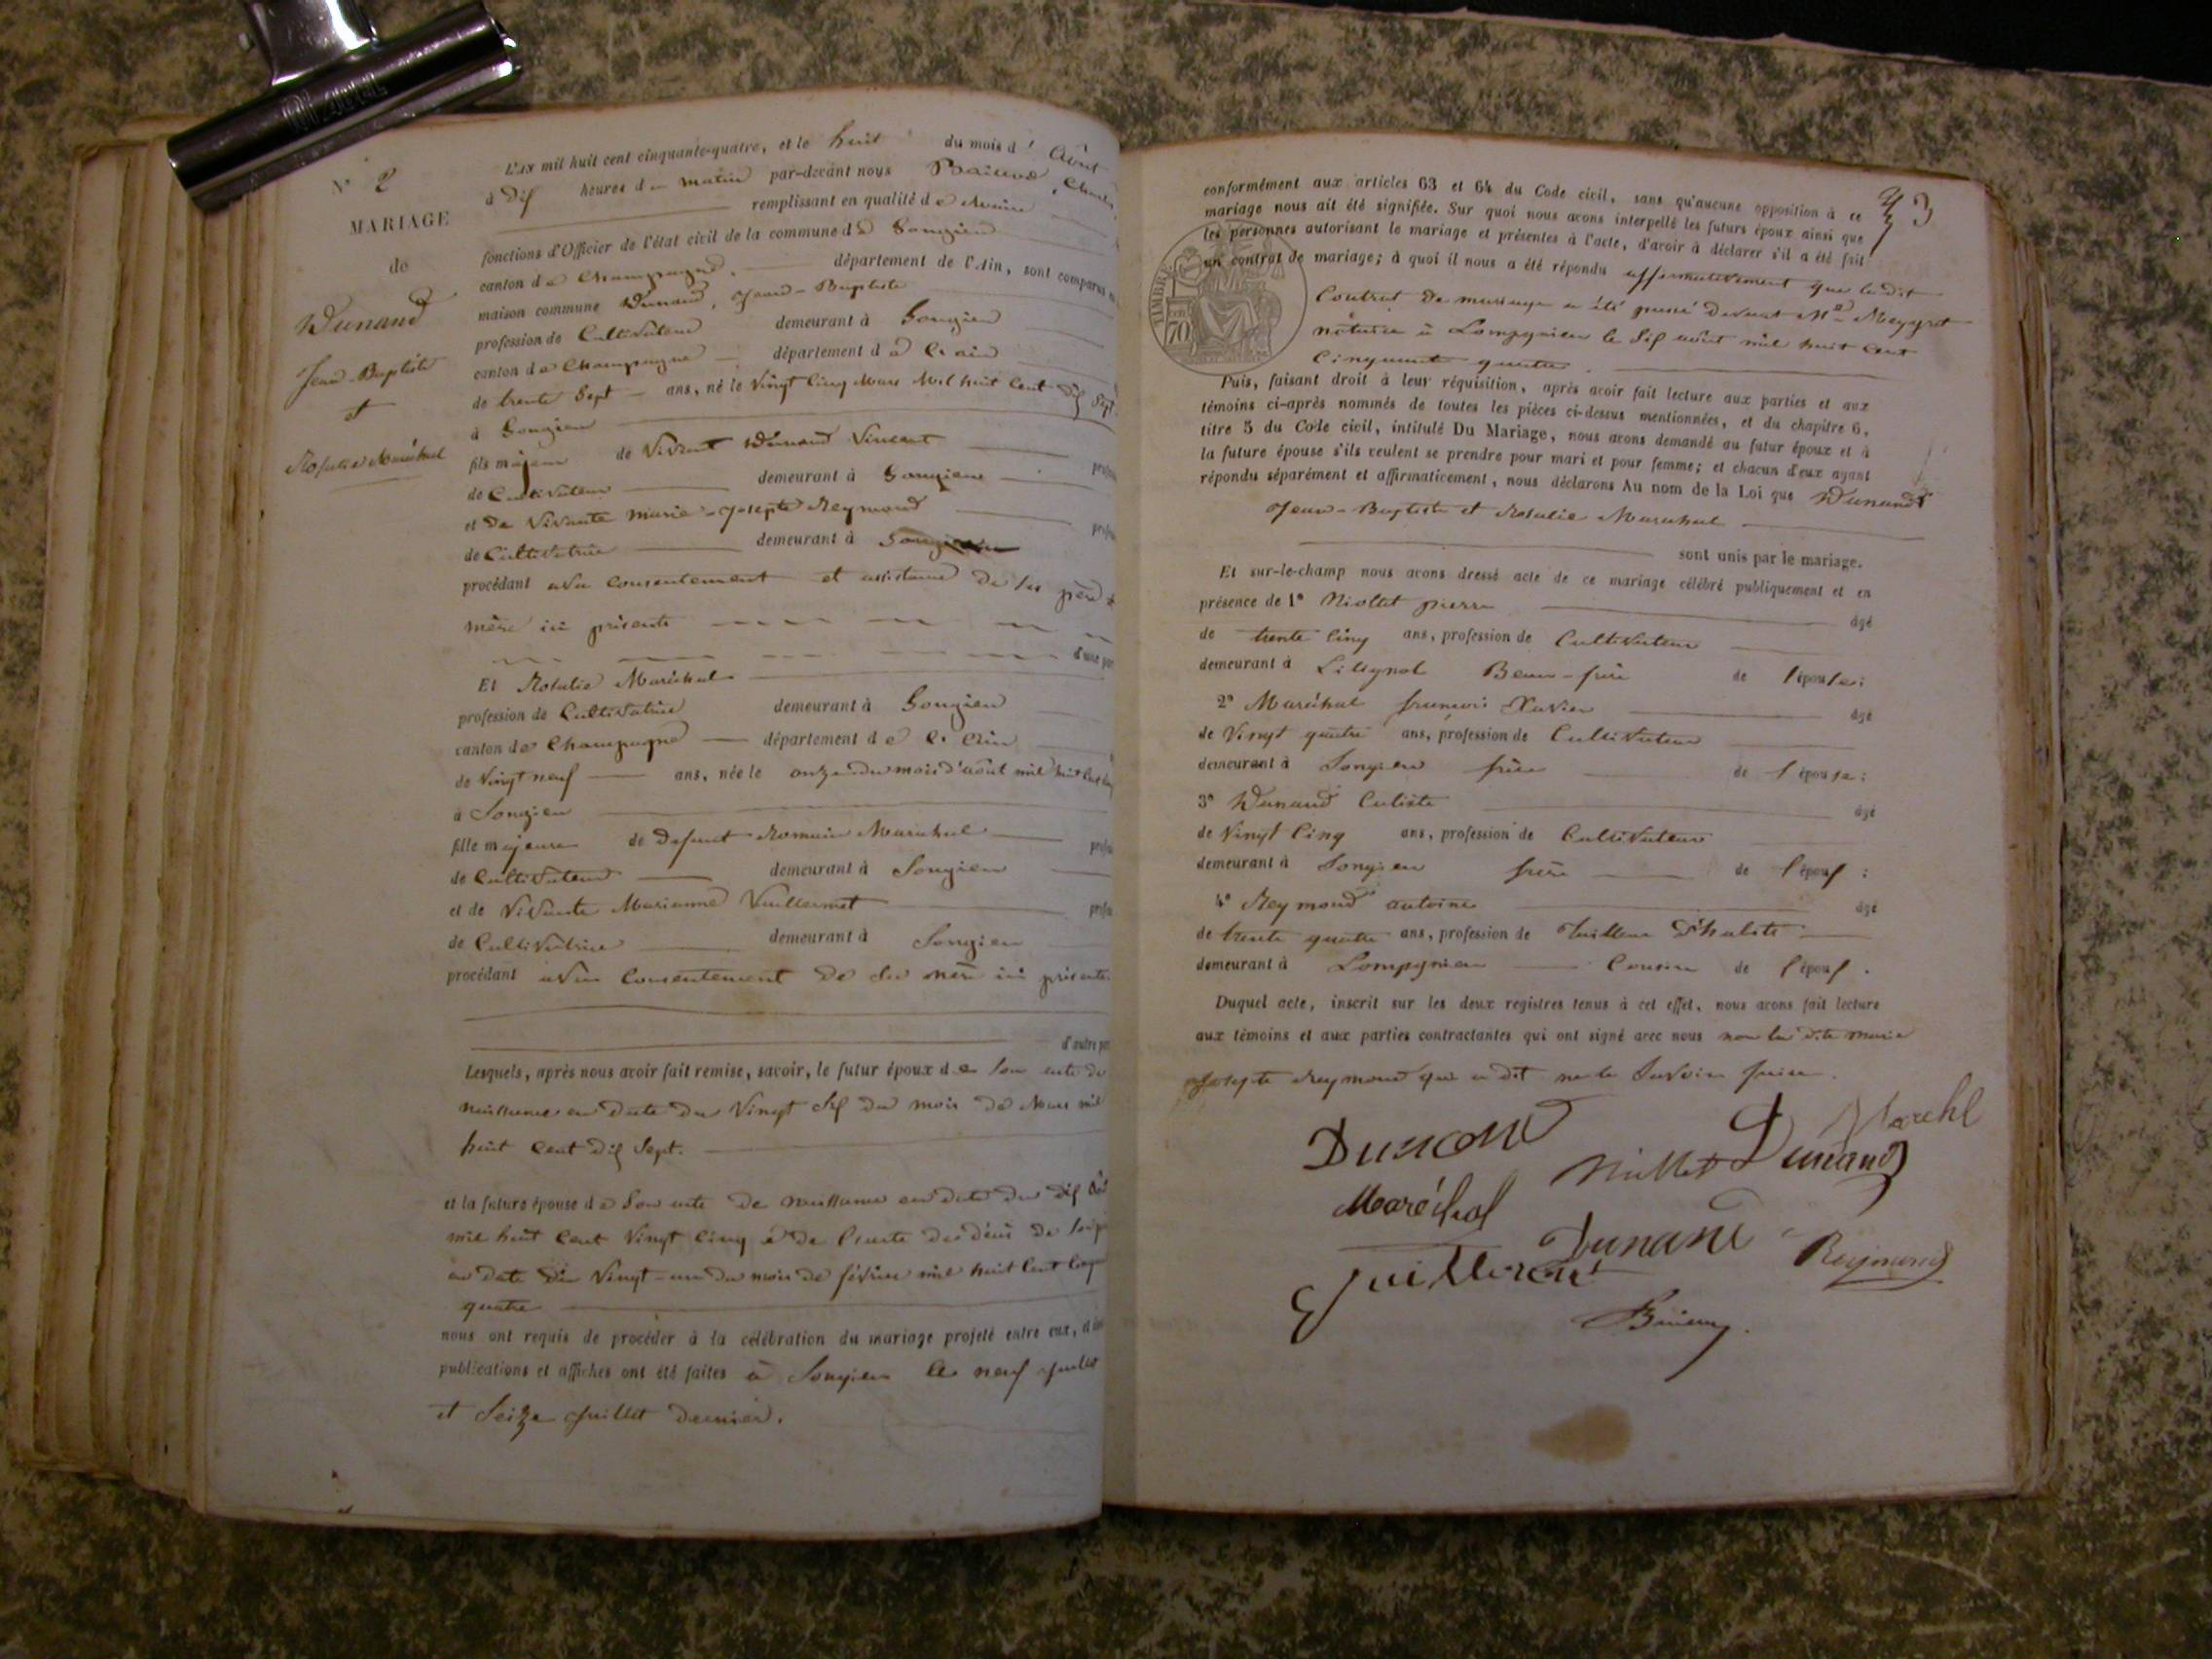 N° 2
MARIAGE
de
Dunand
Jean-Baptiste
et
Rosalie Maréchal
L'an mil huit cent cinquante-quatre, et le huit du mois d' Août
à dix heures du matin par-devant nous
remplissant en qualité de Maire
fonctions d'Officier de l'état civil de la commune de Songieu
canton de Champagne, département de l'Ain, sont comparus en
maison commune Dunand, Jean-Baptiste
profession de Cultivateur demeurant à Songieu
canton de Champagne département de l'ain
de trente Sept ans, né le Vingt Cinq Mars Mil huit Cent dix Sept
à Songieu
fils majeur de Vivant Dunand Vincent
de Cultivateur demeurant à Songieu
et de Vivante Marie-Josepte Reymond
de Cultivatrice demeurant à Songieu
procédant avec consentement et assistance de ses père &
mère ici présents
d'une part
Et Rosalie Maréchal
profession de Cultivatrice demeurant à Songieu
canton de Champagne département de l'Ain
de Vingt neuf ans, née le onze du mois d'août mil huit cent
à Songieu
fille majeure de Defunt Romain Maréchal
de Cultivateur demeurant à Songieu
et de Vivante Marianne Vuillermet
de Cultivatrice demeurant à Songieu
procédant avec Consentement de sa mère ici présente
d'autre part
Lesquels, après nous avoir fait remise, savoir, le futur époux de Son acte de
naissance en date du Vingt Six du mois de Mars mil
huit Cent dix Sept.
et la future épouse de Son acte de naissance en date du dix
mil huit Cent Vingt Cinq & de l'acte de décès de
en date du Vingt-un du mois de février mil huit Cent
quatre
nous ont requis de procéder à la célébration du mariage projeté entre eux,
publications et affiches ont été faites à Songieu le neuf Juillet
et Seize Juillet dernier.
conformément aux articles 63 et 64 du Code civil, sans qu'aucune opposition à ce
mariage nous ait été signifiée. Sur quoi nous avons interpellé les futurs époux ainsi que
les personnes autorisant le mariage et présentes à l'acte, d'avoir à déclarer s'il a été fait
un contrat de mariage; à quoi il nous a été répondu affirmativement que le dit
Contrat de mariage a été passé devant Me Meygret
notaire à Lompgnieu le Six août mil huit Cent
Cinquante quatre.
TIMBRE
70
Puis, faisant droit à leur réquisition, après avoir fait lecture aux parties et aux
témoins ci-après nommés de toutes les pièces ci-dessus mentionnées, et du chapitre 6,
titre 5 du Code civil, intitulé Du Mariage, nous avons demandé au futur époux et à
la future épouse s'ils veulent se prendre pour mari et pour femme; et chacun d'eux ayant
répondu séparément et affirmativement, nous déclarons Au nom de la Loi que Dunand
Jean-Baptiste et Rosalie Maréchal
sont unis par le mariage.
Et sur-le-champ nous avons dressé acte de ce mariage célébré publiquement et en
présence de 1° Niollet pierre âgé
de trente Cinq ans, profession de Cultivateur
demeurant à Lilignod Beau-frère de l'épouse;
2° Maréchal françois Xavier âgé
de Vingt quatre ans, profession de Cultivateur
demeurant à Songieu frère de l'épouse;
3° Dunand Caliste âgé
de Vingt Cinq ans, profession de Cultivateur
demeurant à Songieu frère de l'époux;
4° Reymond antoine âgé
de trente quatre ans, profession de Tailleur d'habits
demeurant à Lompgnieu Cousin de l'époux.
Duquel acte, inscrit sur les deux registres tenus à cet effet, nous avons fait lecture
aux témoins et aux parties contractantes qui ont signé avec nous non la dite Marie
Josepte Reymond qui a dit ne le Savoir faire.
Dunand
Marchl
Niollet Dunand
Maréchal
Dunand
Reymond